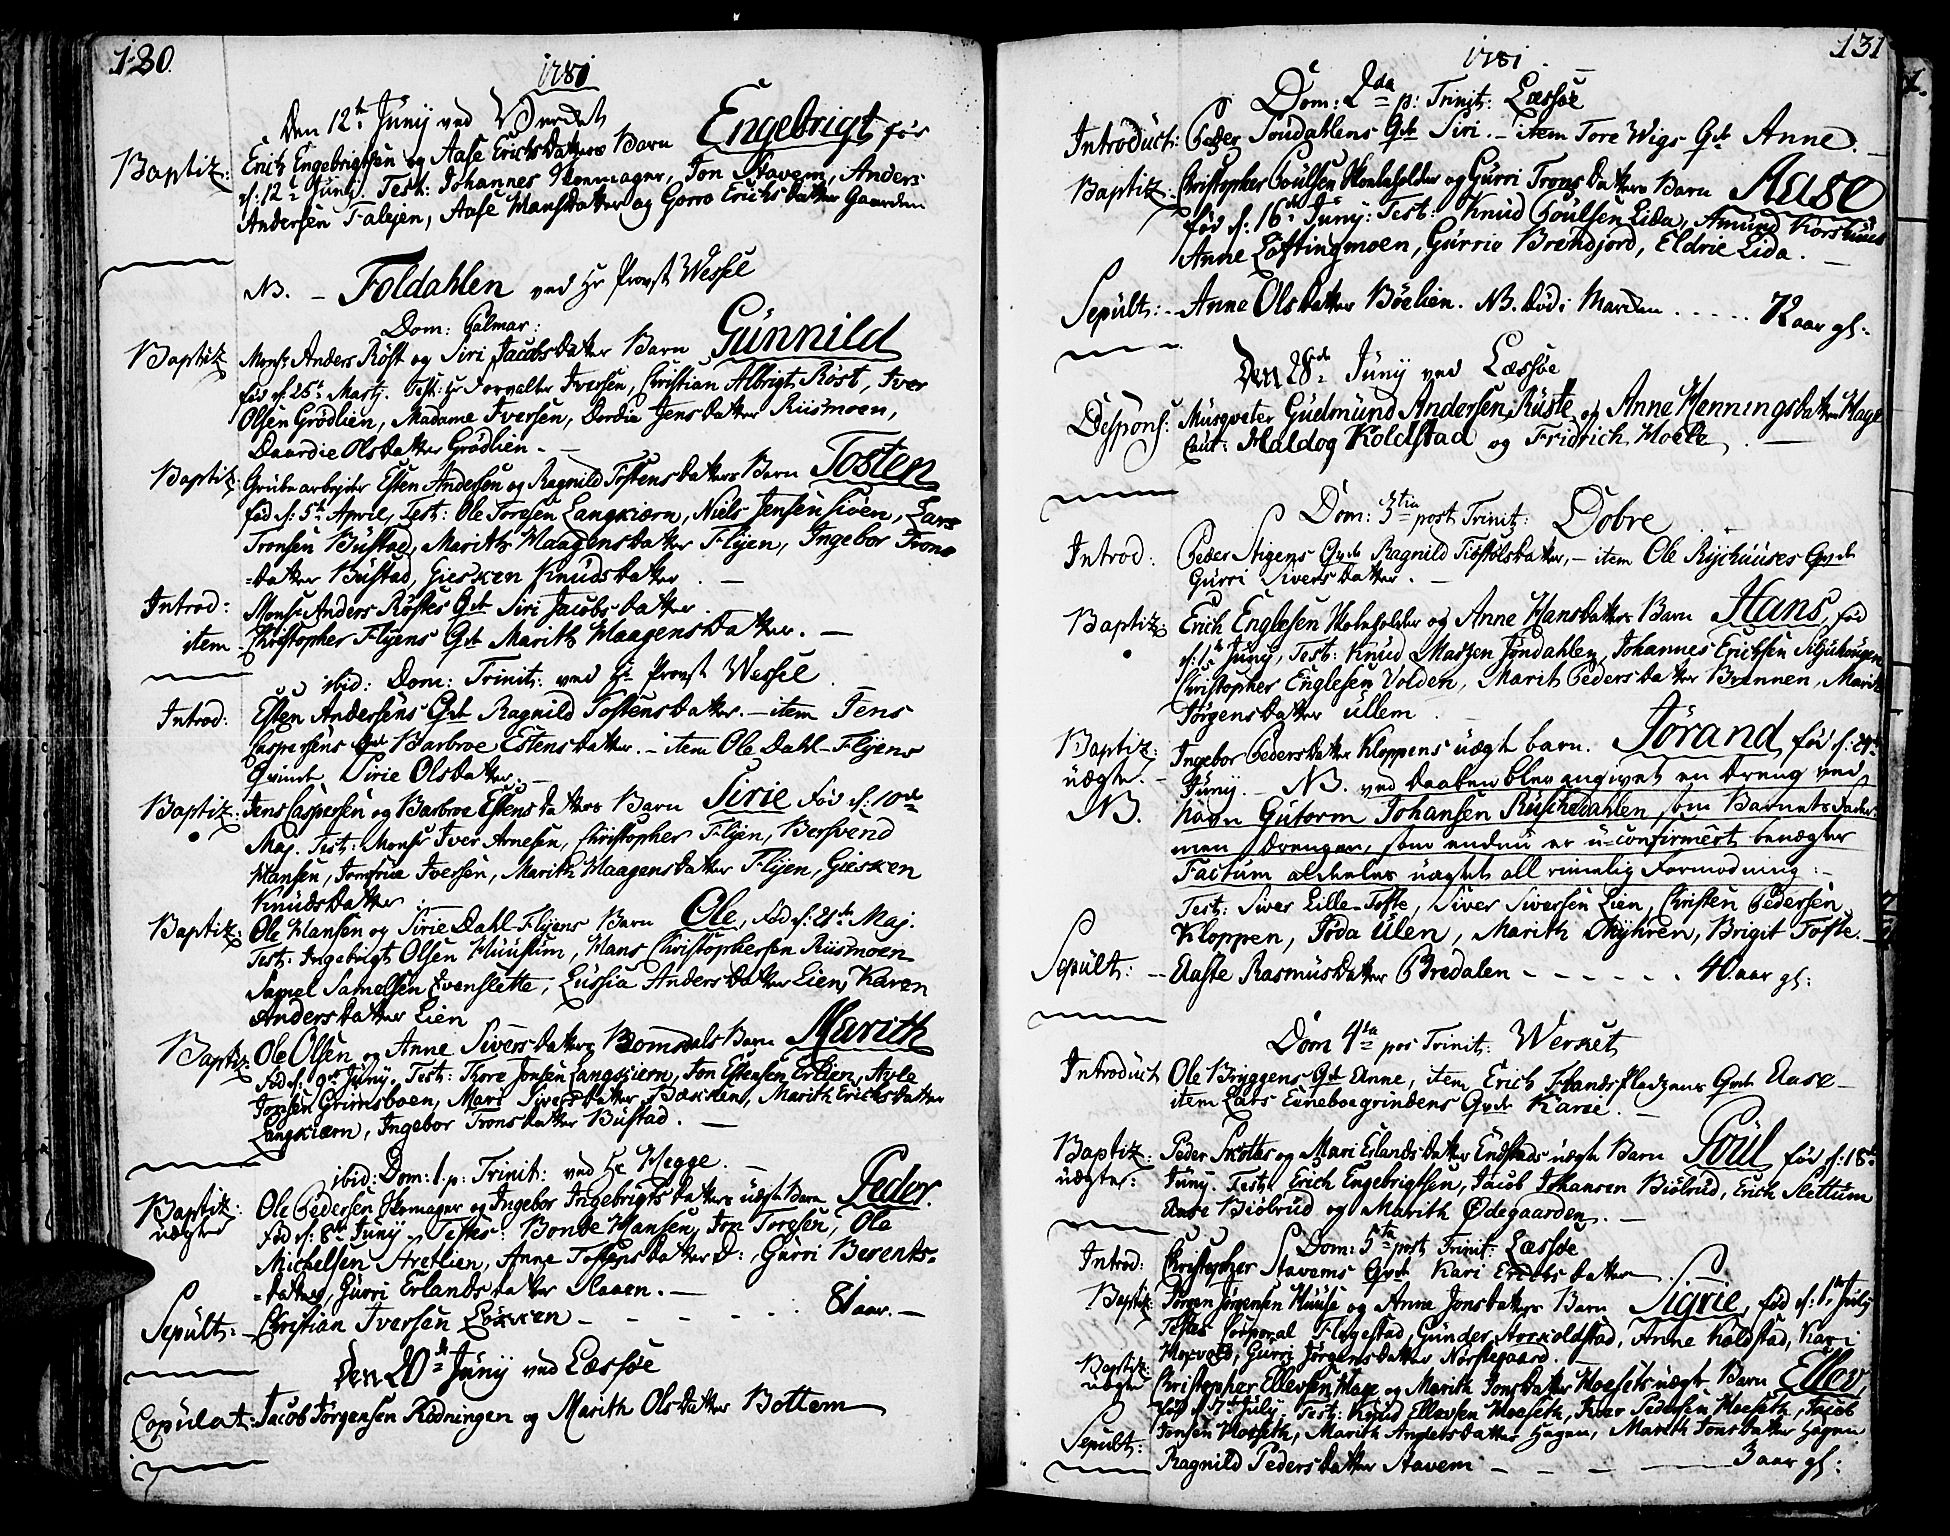 130.
1781
Den 12te Junij ved Verket
Baptiz: Erich Engebrigtsen og Aase Erichsdatters Barn Engebrigt før
d: 12te Junij. Test: Johannes Skomager, Jon Stavem, Anders
Andersen Falesen, Aase Hansdatter og Gorro Erichsdatter Gaarden
NB. – Foldahlen ved Hr Provst Wessel
Dom: Palmar:
Baptiz Monsr Anders Röst og Siri Jacobsdatter Barn Günnild
fød d: 25te Martj. Test: Hr Forvalter Iversen, Christian Albrigt Röst, Iver
Olsen Grødlien, Madame Iversen, Dordia Jensdatter Riismoen,
Daardie Olsdatter Grødlien. –
Baptiz: Grubearbejder Esten Andersen og Ragnild Tostensdatters Barn Tosten
fød d: 5te April, Test: Ole Torgersen Langkiærn, Niels Jensen Siöen, Lars
Tronsen Büstad, Marith Haagensdatter Flijen, Ingebor Trons
=datter Büstad, Giesken Knudsdatter . –
Introd: Monsr Anders Röstes Qvt Siri Jacobsdatter.
item – Christopher Flijens Qvt Marith Haagensdatter. –
ibid: Dom: Trinit: ved Hr Provst Wessel
Introd: Esten Andersens Qvt Ragnild Tostensdatter. – item Jens
Caspersens Qvt Barbroe Estensdatter. – item Ole Dahl-Flijens
Qvinde Sirie Olsdatter. –
Baptiz: Jens Caspersen og Barbroe Estensdatters Barn Sirie fød d: 10de
Maj. Test: Monsr Iver Arnesen, Christopher Flijen, Bersvend
Hansen, Jomfrue Iversen, Marith Haagensdatter Flijen, Giesken
Knüdsdatter.
Baptiz: Ole Hansen og Sirie Dahl-Flijens Barn Ole, fød d: 21de Maj.
Test: Ingebrigt Olsen Hüüsüm, Hans Christophersen Riismoen
Samel Samelsen Evenslette, Lussia Andersdatter Lien, Karen
Andersdatter Lien
Baptiz: Ole Olsen og Anne Siversdatter Romsdals Barn Marith
fød d: 9de Junij. Test: Thore Jonsen Langkiærn, Jon Estensen Erlien, Ayle
Jonsen Grimsboen, Mari Siversdatter Bækken, Marith Erichsdatter
Langkiærn, Ingebor Tronsdatter Büstad. –
ibid: Dom: 1. p: Trinit: ved Hr Hegge. –
Baptiz: Ole Pedersen Skomager og Ingebor Ingebrigtsdatters uægte Barn Peder.
uægte fød d: 8de Junij. Testes: Bonde Hansen, Jon Torgsen, Ole
Michelsen Stretlien, Anne Tostensdatter D:, Gürri Berents-
=datter, Gürri Erlandsdatter Slaaen. –
Sepült: – Christian Iversen Løkken – – – – 81 aar. –
Den 20de Junij ved Læssøe
Copulat: Jacob Jørgensen Rødningen og Marith Olsdatter Bottem
131
1781.
Dom: 2da p: Trinit: Læssøe
Introduct: Peder Soudahlens Qvt Siri. – item Tore Wigs Qvt Anne. –
Baptiz: Christopher Poülsen Skoleholder og Gürri Tronsdatters Barn Aase
fød d: 16de Junij: Test: Knud Poülsen Lida, Amund Korshüüs
Anne Løftingmoen, Gürrie Brendjord, Eldrie Lida. –
Sepült: – Anne Olsdatter Böelien. NB. død i Marden . . . . . 72 aar gl:
Den 28de Junij ved Læssøe
Despons: Müsqveter Güdmünd Andersen Rüste og Anne Henningsdatter Hage
Caut: Haldog Koldstad og Fridrich Moele . –
Dom: 3tia post Trinit: Dobre
Introd: Peder Stigens Qvt Ragnild Tiöstolsdatter, – item Ole Rijshüüses Qvt
Gürri Siversdatter. –
Baptiz: Erich Englesen Skoleholder og Anne Hansdatters Barn Hans, fød
d: 1te Junij, Test: Knüd Madzen Jøndahlen, Johannes Erichsen Siljehougen
Christopher Englesen Volden, Marit Pedersdatter Brennen, Marit
Jørgensdatter üllem .
Baptiz: Ingebor Pedersdatter Kloppens uægte barn. Jörand, fød d: 24de
uægte. – Junij. – NB. ved Daaben blev angivet en dreng ved
NB. Navn Gütorm Johansen Rüschedahlen, som Barnets fader.
men Drengen, som endnu er u-confirmert benægter
Factum aldeles uagtet all rimelig Formodning: –
Test: Siver Lille-Tofte, Siver Siversen Lien, Christen Pedersen
Kloppen, Töda Ulen, Marith Myhren, Brigit Tofte. –
Sepült: – Aaste Rasmusdatter Bredalen – – – – – . 40 aar gl:
Dom 4ta pos Trinit: Werket
Introduct Ole Bryggens Qvt Anne, item Erich Flands Pladzens Qvt Aase –
item Lars Eineboegrindens Qvt Karie. –
Baptiz: Peder Skottes og Mari Erlandsdatter Endstads uægte Barn Poül fød d: 18de
uægtes: Junij. Test: Erich Engebrigtsen, Jacob Johansen Biølrud, Erich Slettum
Aase Biølrud og Marith Ødegaarden. –
Dom: 5ta post Trinit: Læssøe
Introd: Christopher Stavems Qvt Kari Erichsdatter
Baptiz: Jörgen Jørgensen Hüüse og Anne Jonsdatters Barn Sigrie, fød d: 1te Julij
Testes Corporal Flygestad, Günder Aoekoldstad, Anne Koldstad, Kari
Moxvold, Gurri Jørgensdatter Norstegaard. –
Baptiz: Christopher Ellevsen Hage og Marith Jonsdatter Moeseths uægte Barn Ellev,
uægte fød d: 7de Julij. Test: Knud Ellevsen Moeseth, Iver Pedersen Moeseth, Jacob
Jonsen Moeseth, Marith Andersdatter Hagen, Marith Jonsdatter Hagen
Sepült: Ragnild Pedersdatter Stavem – – – – 3 aar gl: